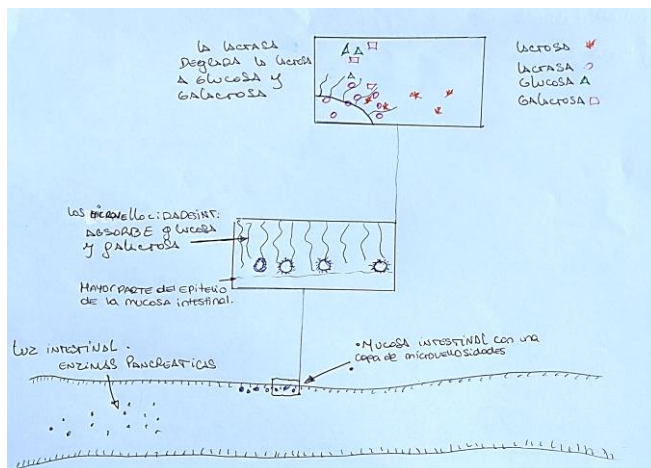 LA LACTASA
DEGRADA LA LACTOSA
A GLUCOSA Y
GALACTOSA
LACTOSA
LACTASA
GLUCOSA
GALACTOSA
LOS MICROVELLOCIDADES INT.
ABSORBE GLUCOSA
Y GALACTOSA
MAYOR PARTE DEL EPITELIO
DE LA MUCOSA INTESTINAL.
LUZ INTESTINAL.
ENZIMAS PANCREATICAS
• MUCOSA INTESTINAL CON UNA
CAPA DE MICROVELLOSIDADES